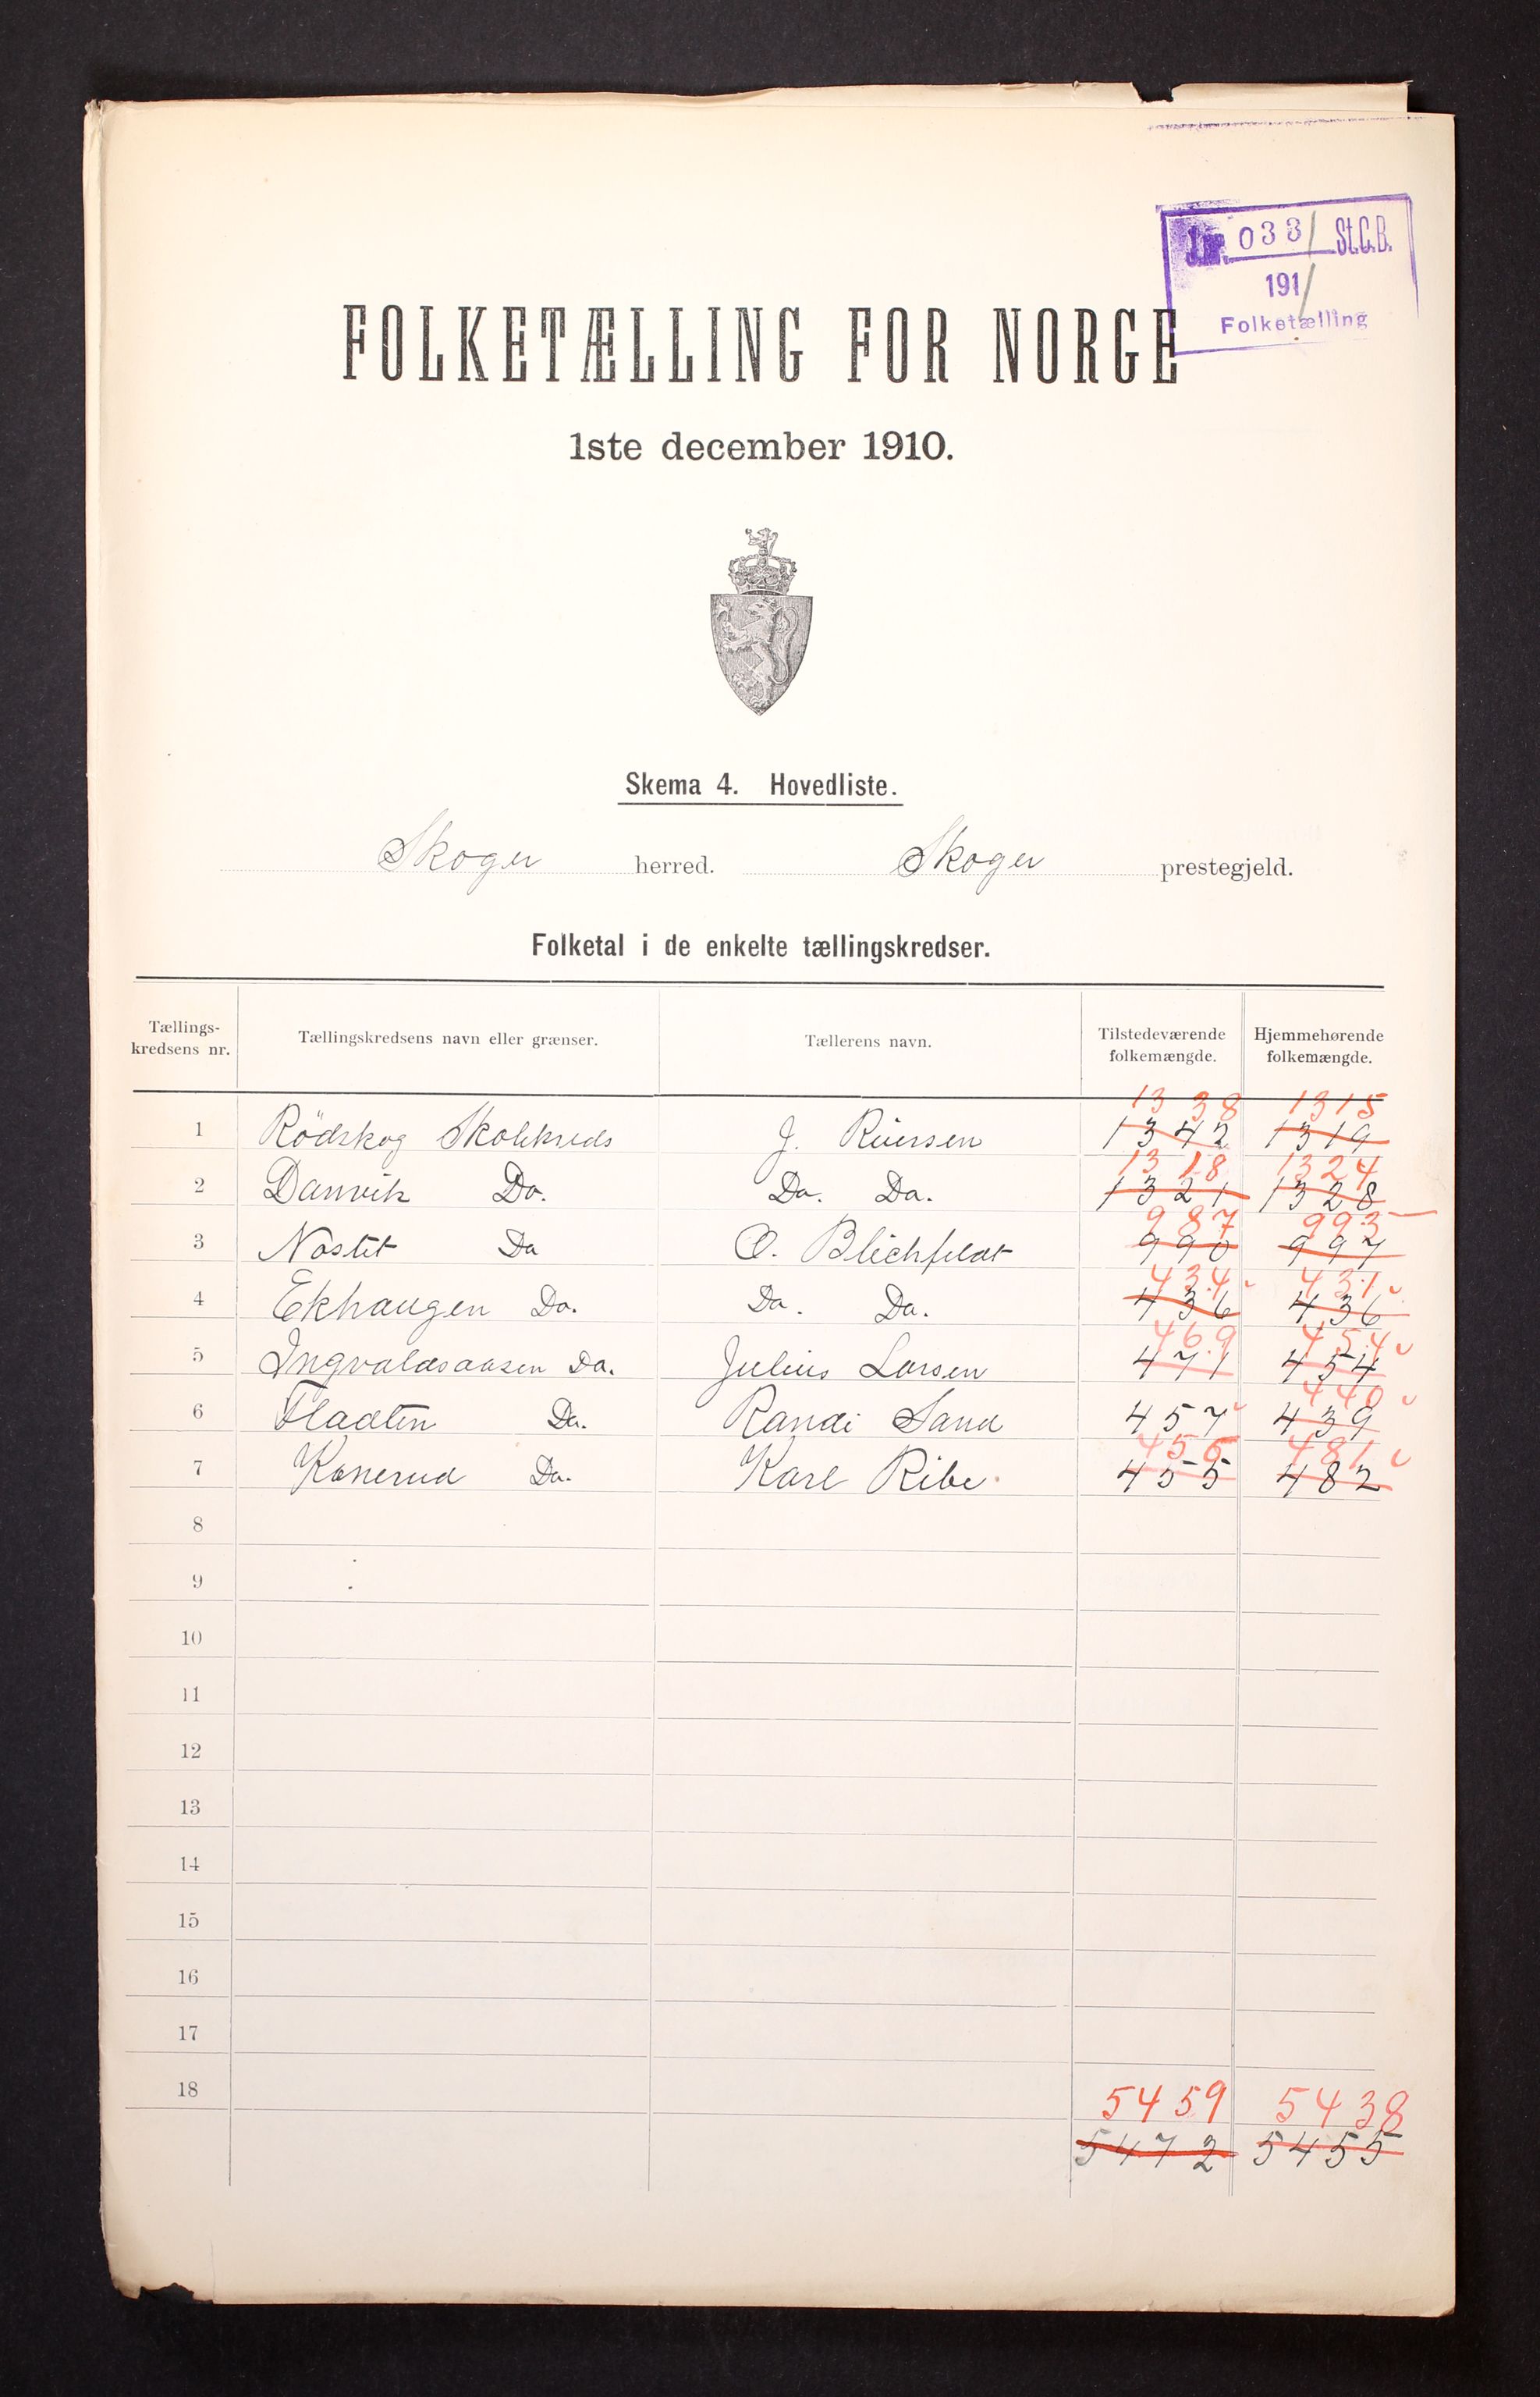 J.nr. 033 St.C.B.
1911
Folketælling
FOLKETÆLLING FOR NORGE
1ste december 1910.
Skema 4. Hovedliste.
Skoger herred. Skoger prestegjeld.
Folketal i de enkelte tællingskredser.
Tællings-
kredsens nr.
Tællingskredsens navn eller grænser.
Tællerens navn.
Tilstedeværende
folkemængde.
Hjemmehørende
folkemængde.
1338 1315
1 Rödskog Skolekreds J. Riiersen 1342 1319
1318 1324
2 Danvik Do. Do. Do. 1321 1328
987 993
3 Nøstet Do O. Blichfeldt 990 997
434 431
4 Ekhaugen Do. Do. Do. 436 436
469 454
5 Ingvaldsaasen Do. Julius Larsen 471 454
440
6 Fladten Do. Randi Sand 457 439
456 481
7 Konerud Do. Karl Ribe. 455 482
8
9
10
11
12
13
14
15
16
17
18
5459 5438
5472 5455